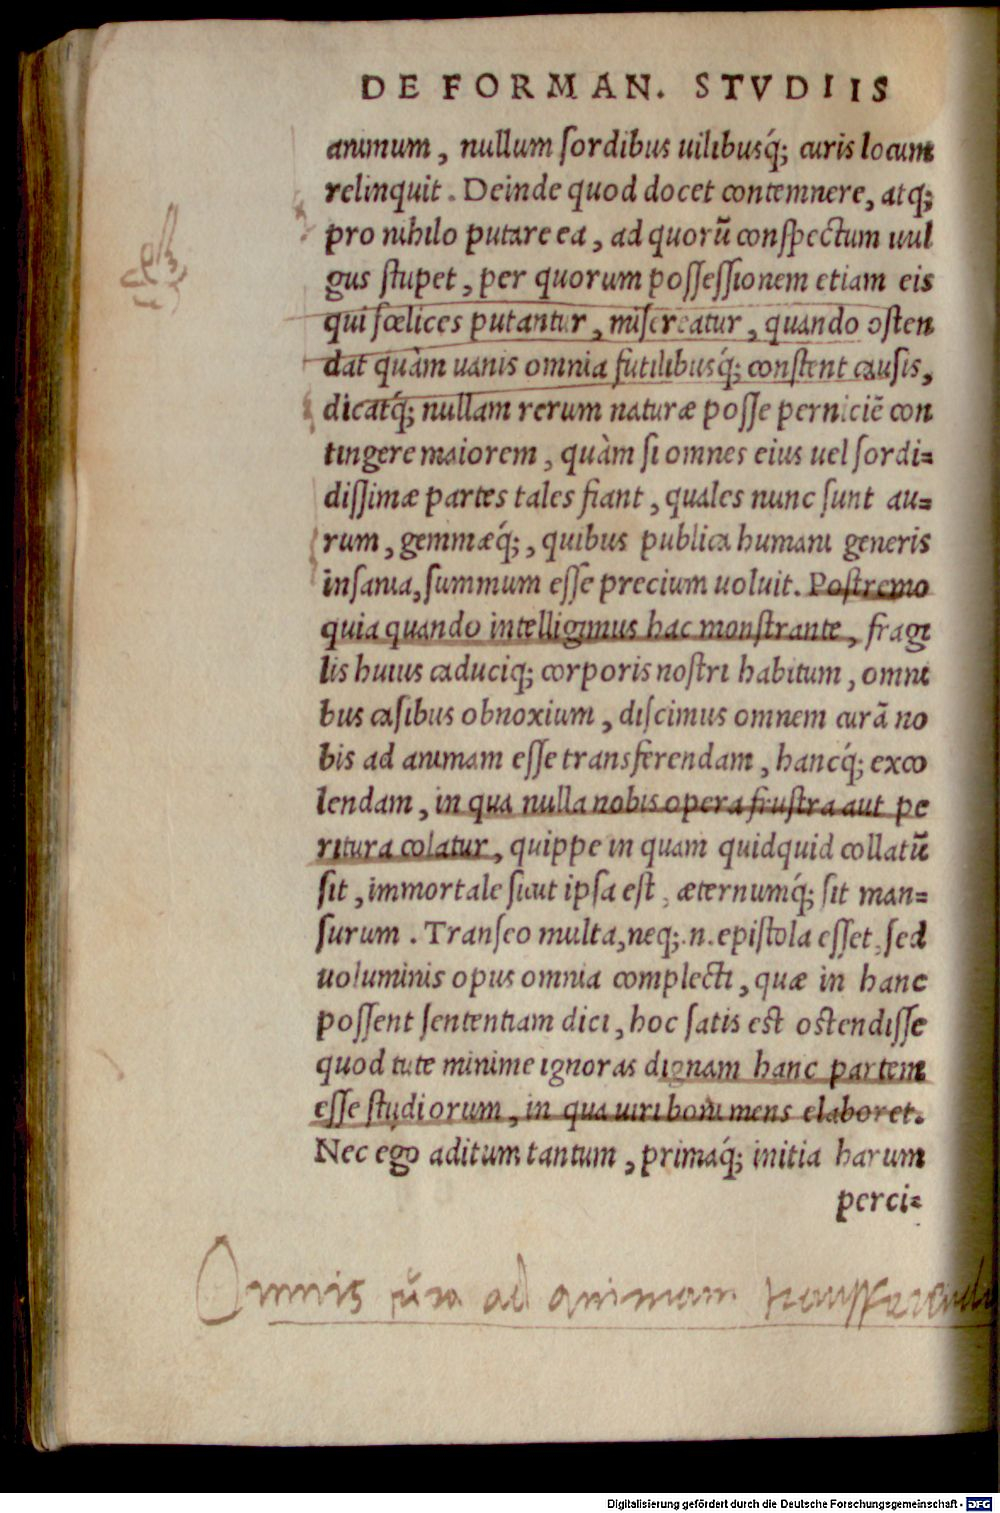 DE FORMAN. STVDIIS
animum, nullum sordibus uilibusq́; curis locum
relinquit. Deinde quod docet contemnere, atq;
pro nihilo putare ea, ad quorũ conspectum uul
gus stupet, per quorum possessionem etiam eis
qui fœlices putantur, misereatur, quando osten
dat quàm uanis omnia futilibusq́; constent causis,
dicatq́; nullam rerum naturæ posse perniciẽ con
tingere maiorem, quàm si omnes eius uel sordi=
dissimæ partes tales fiant, quales nunc sunt au=
rum, gemmæq́;, quibus publica humani generis
insania, summum esse precium uoluit. Postremo
quia quando intelligimus hac monstrante, fragi
lis huius caduciq; corporis nostri habitum, omni
bus casibus obnoxium, discimus omnem curã no
bis ad animam esse transferendam, hancq́; exco
lendam, in qua nulla nobis opera frustra aut pe
ritura colatur, quippe in quam quidquid collatũ
sit, immortale sicut ipsa est, æternumq́; sit man=
surum. Transeo multa, neq;.n. epistola esset, sed
uoluminis opus omnia complecti, quæ in hanc
possent sententiam dici, hoc satis est ostendisse
quod tute minime ignoras dignam hanc partem
esse studiorum, in qua uiri boni mens elaboret.
Nec ego aditum tantum, primaq́; initia harum
perci=
Omnis cura ad animam transferenda
Digitalisierung gefördert durch die Deutsche Forschungsgemeinschaft - DFG